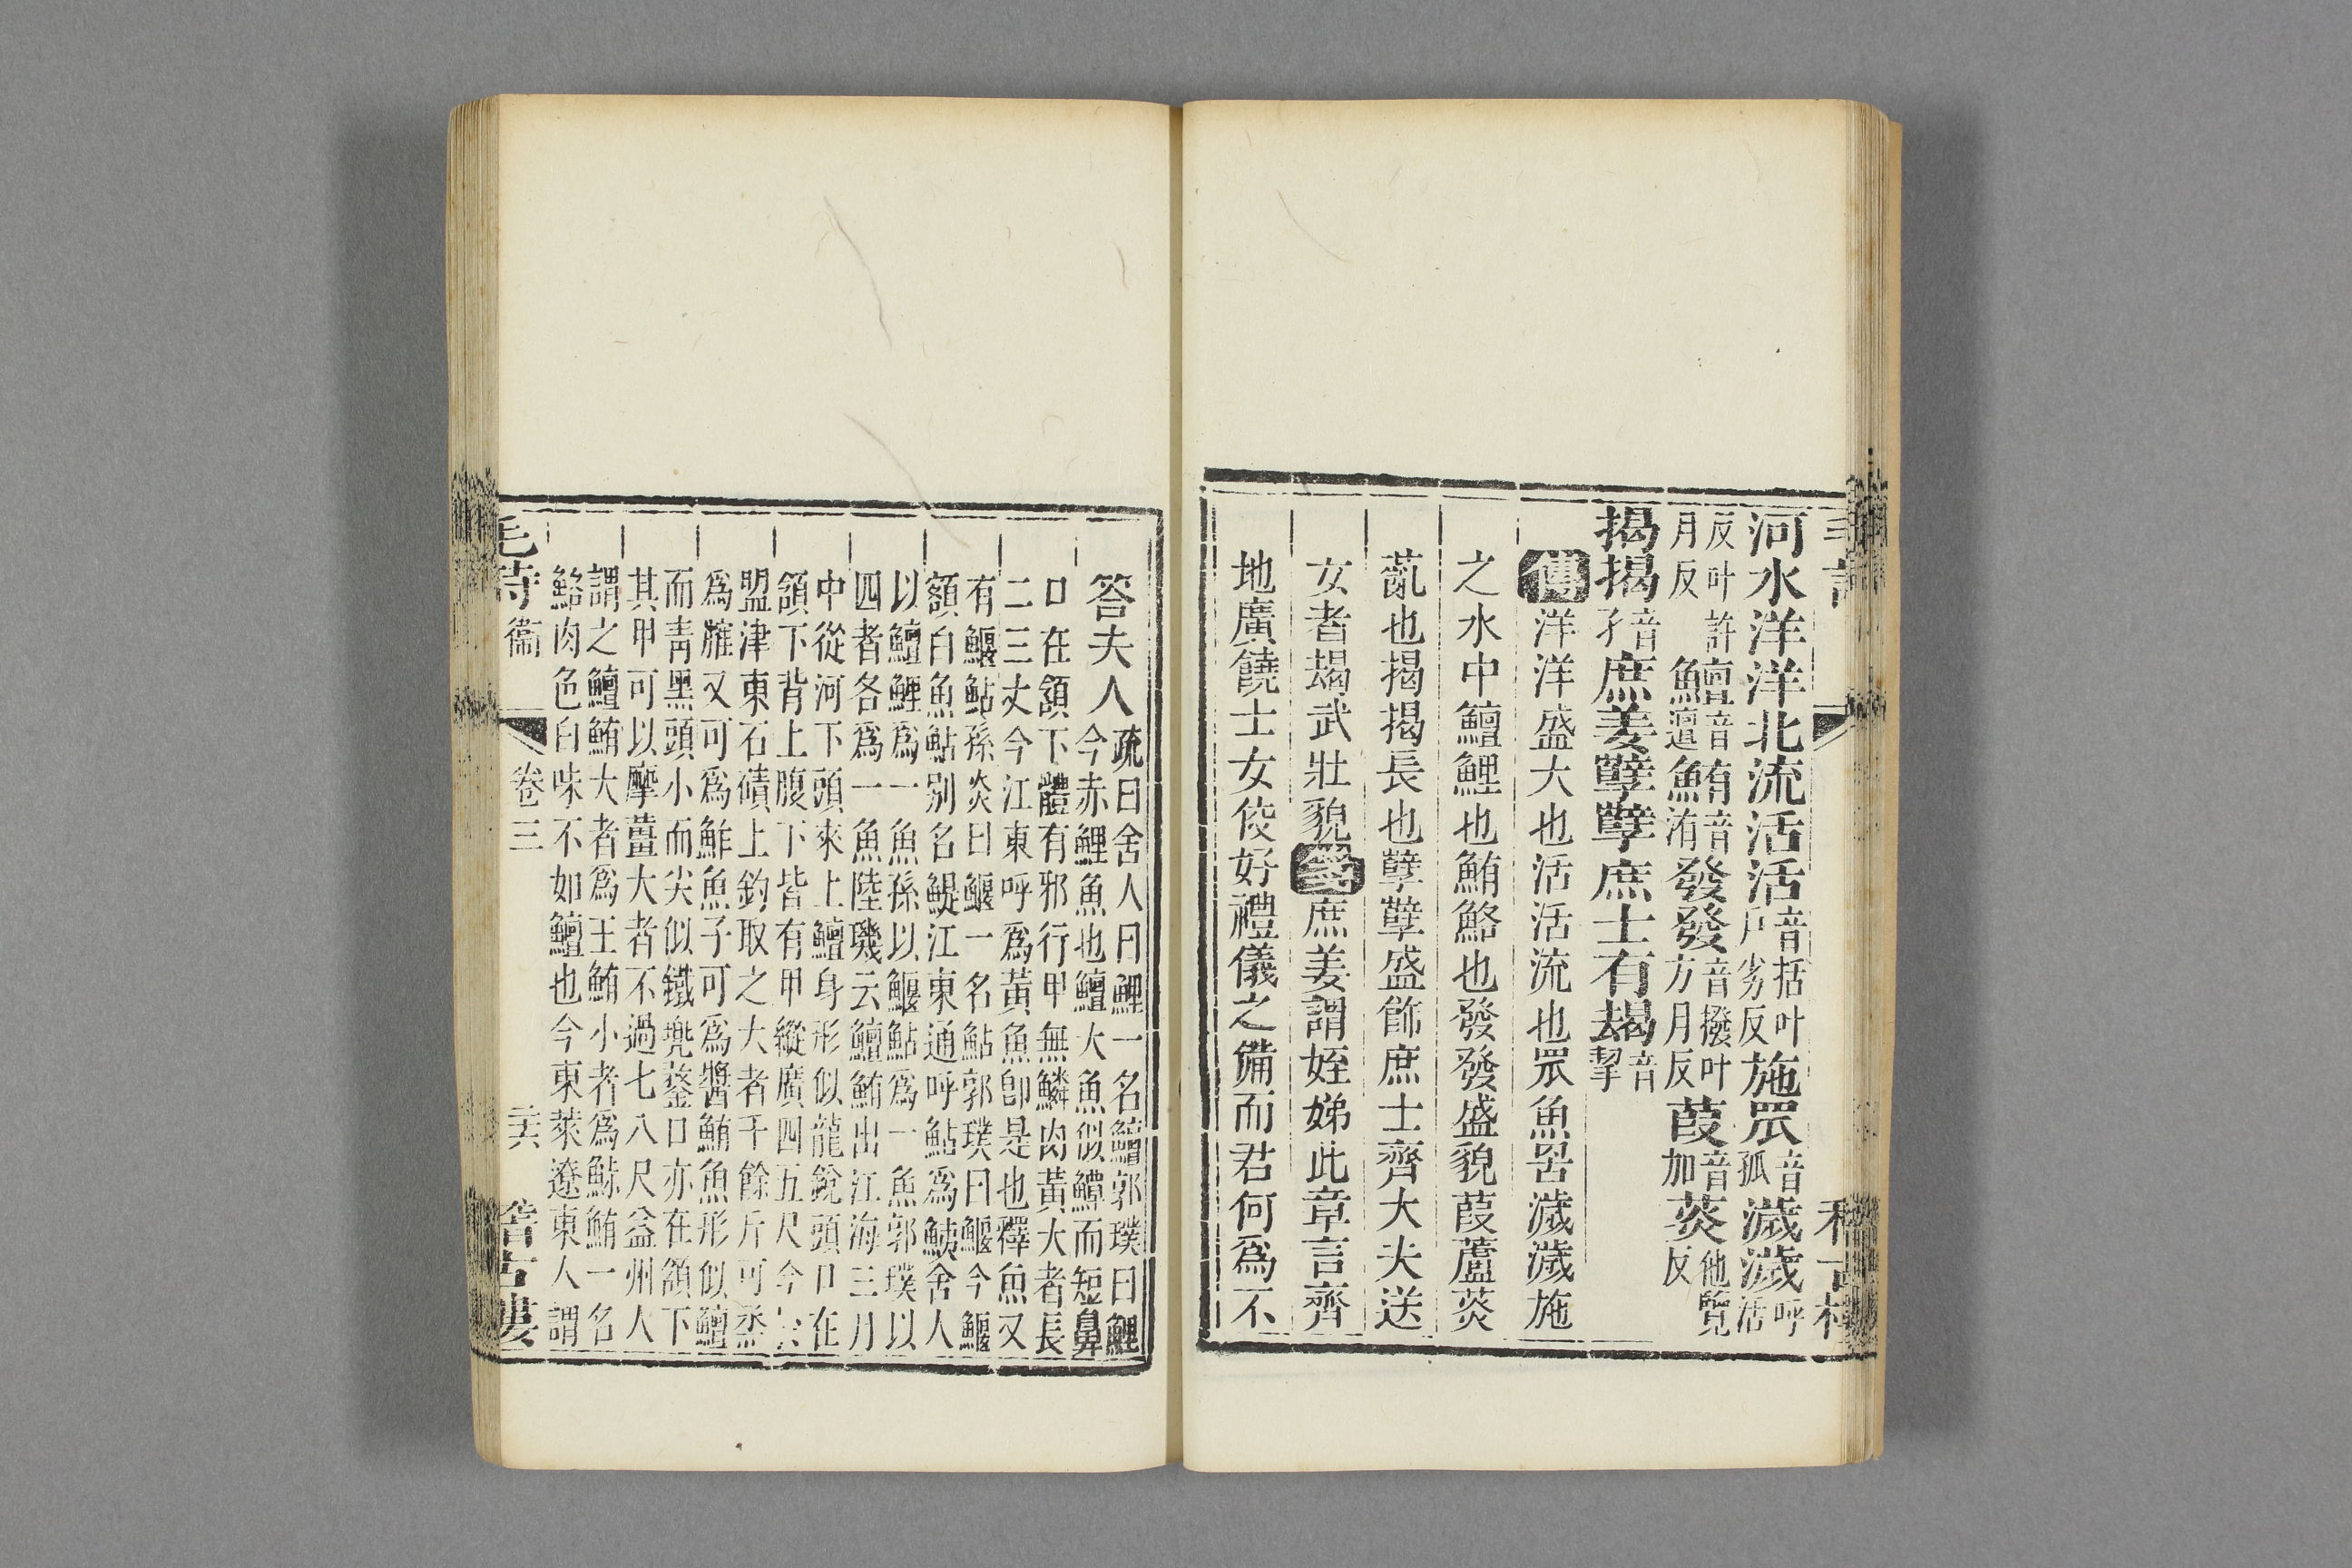 毛詩 稽古樓
河水洋洋北流活活音括叶戶劣反施罛音孤濊濊呼活
反叶許月反鱣音邅鮪音洧發發音撥叶方月反葭音加菼他覽反
揭揭音孑庶姜孼孼庶士有朅音挈
傳洋洋盛大也活活流也罛魚罟濊濊施
之水中鱣鯉也鮪鮥也發發盛貌葭蘆菼
薍也揭揭長也孼孼盛飾庶士齊大夫送
女者朅武壯貌箋庶姜謂姪娣此章言齊
地廣饒士女佼好禮儀之備而君何爲不
答夫人疏曰舍人曰鯉一名鱣郭璞曰鯉
今赤鯉魚也鱣大魚似鱏而短鼻
口在頷下體有邪行甲無鱗肉黃大者長
二三丈今江東呼爲黃魚卽是也釋魚又
有鰋鮎孫炎曰鰋一名鮎郭璞曰鰋今鰋
額白魚鮎别名鯷江東通呼鮎爲鮧舍人
以鱣鯉爲一魚孫以鰋鮎爲一魚郭璞以
四者各爲一魚陸璣云鱣鮪出江海三月
中從河下頭來上鱣身形似龍銳頭口在
頷下背上腹下皆有甲縱廣四五尺今
盟津東石磧上釣取之大者千餘斤可烝
爲臛又可爲鮓魚子可爲醬鮪魚形似鱣
而青黑頭小而尖似鐵兜鍪口亦在頷下
其甲可以摩薑大者不過七八尺益州人
謂之鱣鮪大者爲王鮪小者爲鮛鮪一名
鮥肉色白味不如鱣也今東萊遼東人謂
毛詩 衞 卷三 二六 稽古樓